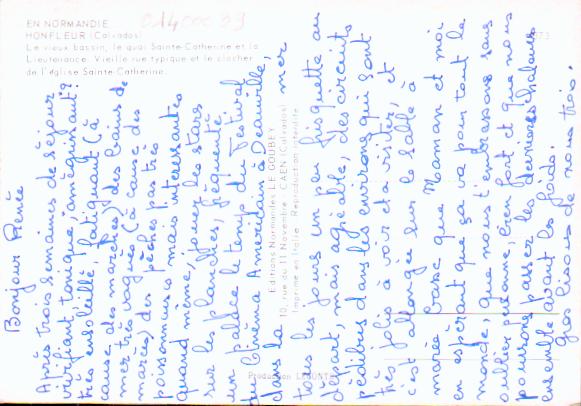 EN NORMANDIE
HONFLEUR (Calvados)
Le vieux bassin, le quai Sainte-Catherine et la
Lieutenance. Vieille rue typique et le clocher
de l'église Sainte-Catherine.
01400039
Editions Normandes LE GOUBEY
10, rue du 11 Novembre CAEN (Calvados)
Imprimé en Italie Reproduction interdite
Bonjour Renée
Après trois semaines de séjour
vivifiant, tonique, amaigrissant?
très ensoleillé, fatiguant (à
cause des marches) des bains de
mer très vagués (à cause des
marées) des pêches pas très
poissonneuses mais intéressantes
quand même, jouer les stars
sur les planches, fréquenté
un palace le temps du Festival
du Cinéma Américain à Deauville,
dans la mer
tous les jours un peu frisquette au
départ, mais agréable, des circuits
pédibus dans les environs qui sont
très jolis à voir et à visiter, et
s'est allongée sur le sable à
marée basse que Maman et moi
en espérant que ça va pour tout le
monde, que nous t'embrassons sans
oublier personne, bien fort et que nous
pourrons passer les dernières chaleurs
ensemble avant les froids.
gros bisous de nous trois.